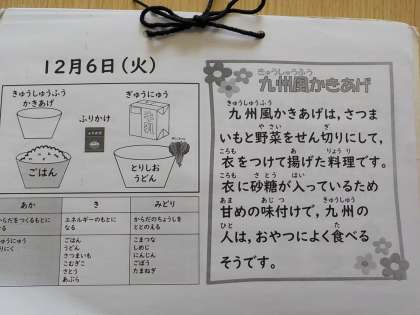 12月6日(火)
きゅうしゅうふう
かきあげ
ぎゅうにゅう
牛乳
ふりかけ
ごはん
とりしお
うどん
あか
き
みどり
らだをつくるもとに
なる
エネルギーのもとに
なる
からだのちょうしを
ととのえる
ゅうにゅう
りにく
ごはん
うどん
さつまいも
こむぎこ
さとう
あぶら
こまつな
しめじ
にんじん
ごぼう
たまねぎ
きゅうしゅうふう
九州風かきあげ
きゅうしゅうふう
九州風かきあげは,さつま
やさい ぎ
いもと野菜をせん切りにして,
ころも あ りょうり
衣をつけて揚げた料理です。
ころも さとう はい
衣に砂糖が入っているため
あま あじつ きゅうしゅう
甘めの味付けで,九州の
ひと た
人は,おやつによく食べる
そうです。